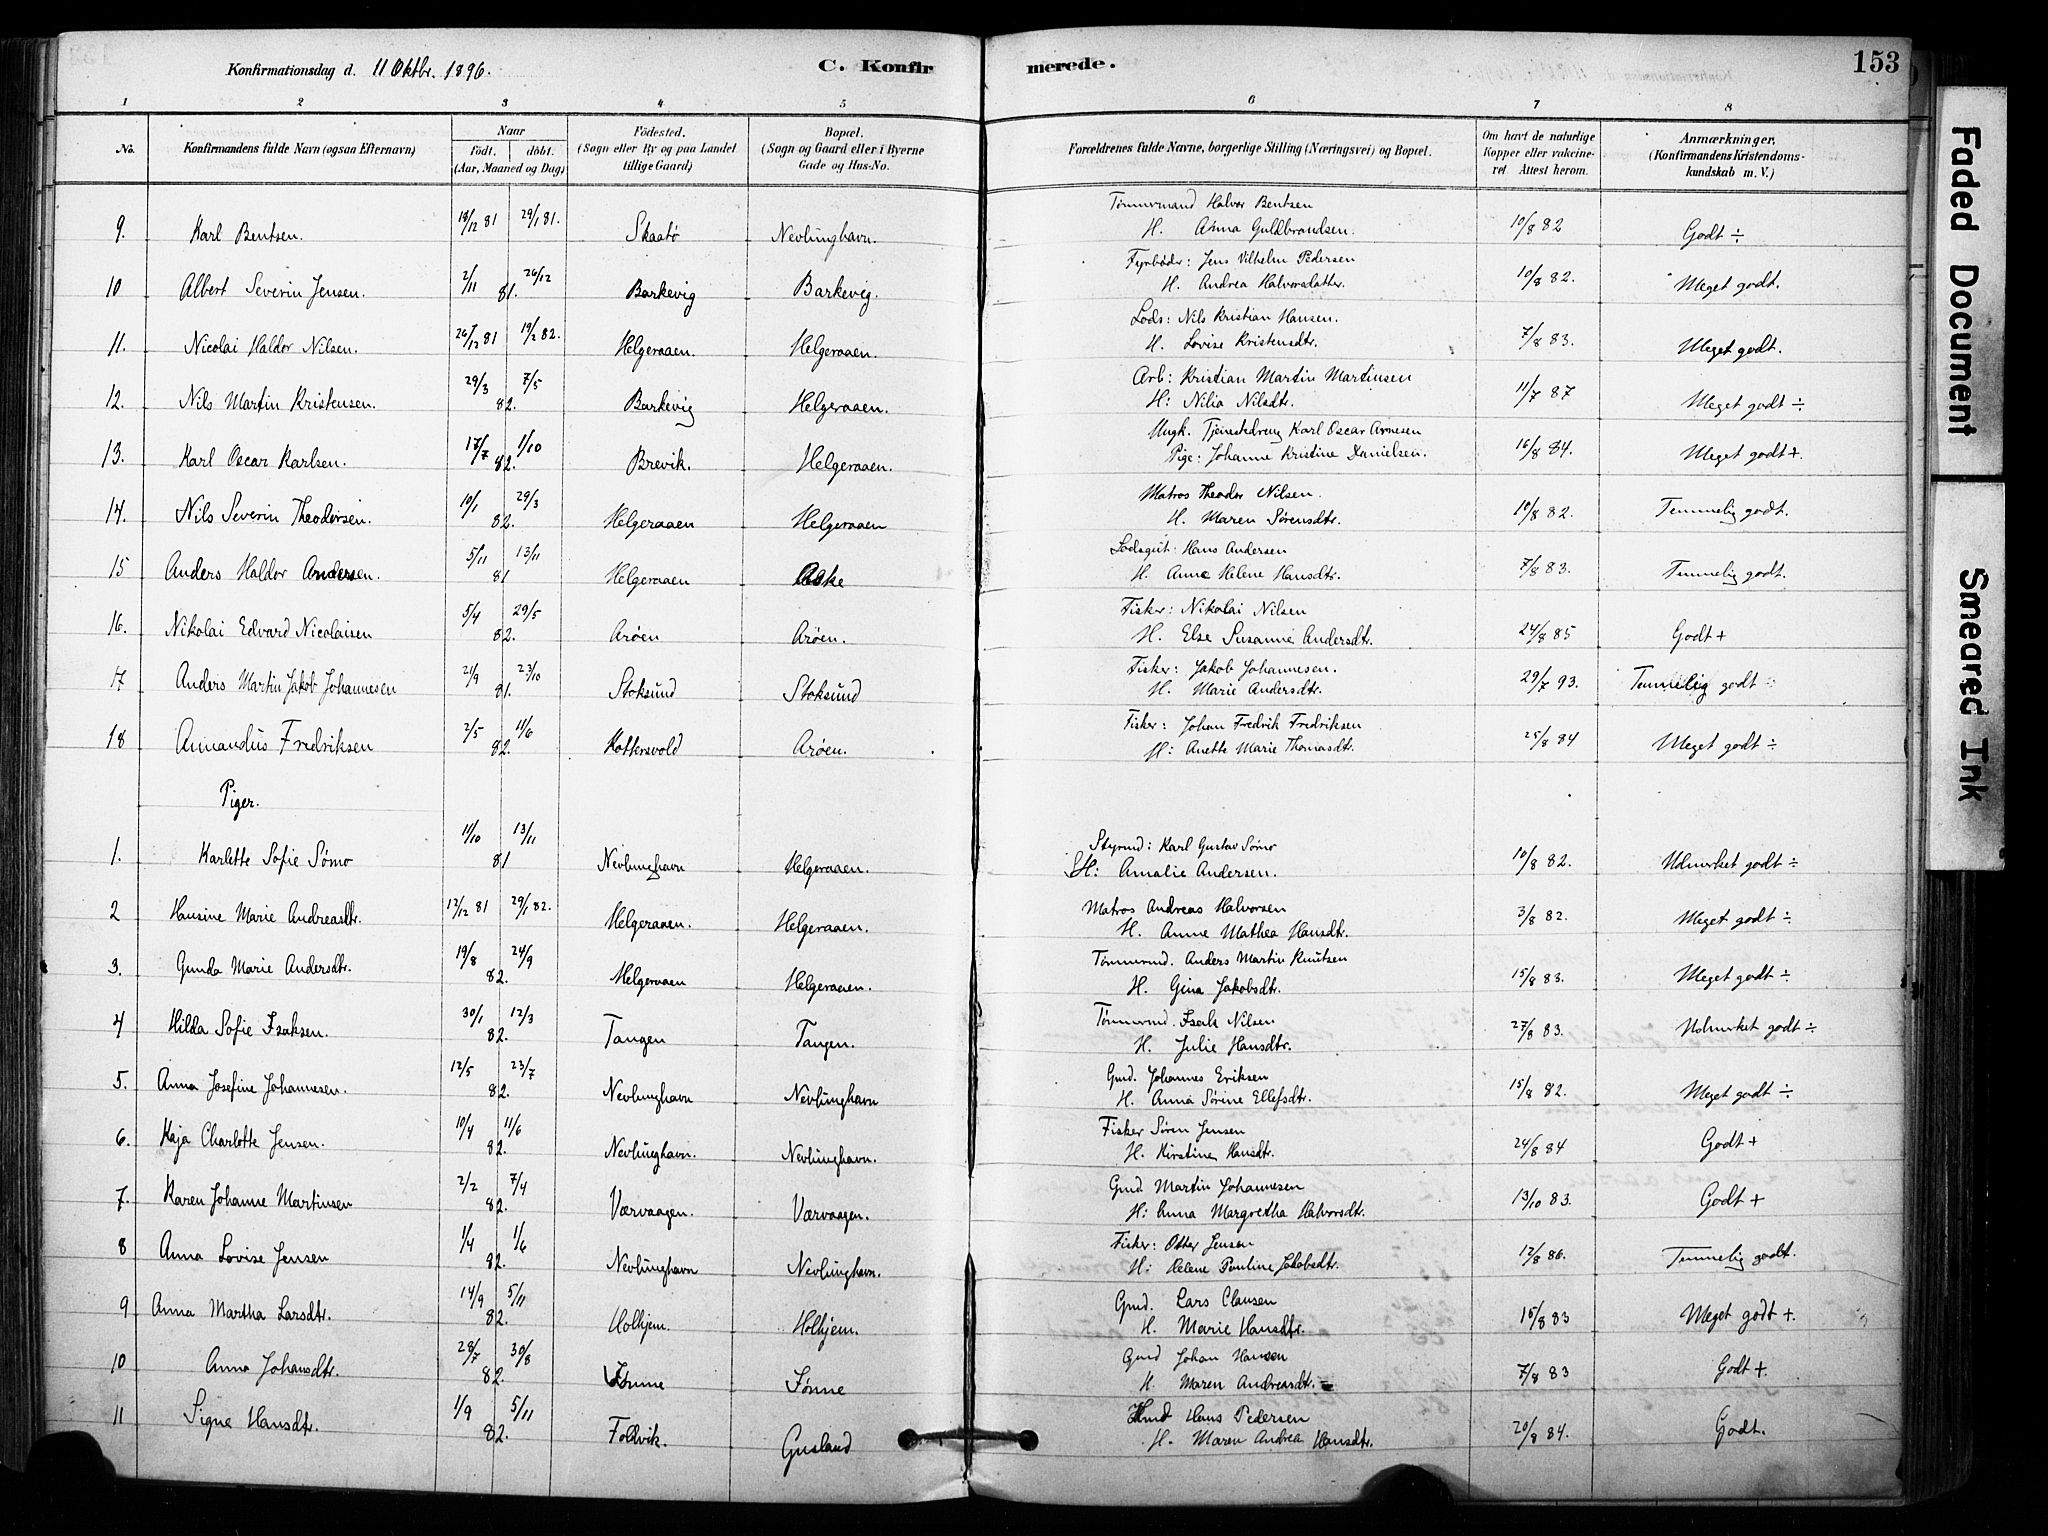 Konfirmationsdag d. 11 Oktbr. 1896.
C. Konfirmerede.
153
1 2 3 4 5 6 7 8
No. Konfirmandens fulde Navn (ogsaa Efternavn) Naar Födt. döbt. (Aar, Maaned og Dag) Födested. (Sogn eller By og paa Landet tillige Gaard) Bopæl. (Sogn og Gaard eller i Byerne Gade og Hus-No. Forældrenes fulde Navne, borgerlige Stilling (Næringsvei) og Bopæl. Om havt de naturlige Kopper eller vakcineret. Attest herom. Anmærkninger. (Konfirmandens Kristendomskundskab m. V.)
9. Karl Bentsen. 18/12 81 29/1 81. Skaatø Nevlunghavn. Tømmermand Halvor Bentsen H. Anna Guldbrandsen. 10/8 82 Godt ÷
10 Albert Severin Jensen. 2/11 26/12 81. Barkevig Barkevig. Fyrbøder: Jens Vilhelm Pedersen H. Andrea Halvorsdatter. 10/8 82. Meget godt.
11. Nicolai Haldor Nilsen. 26/12 81 19/2 82. Helgeraaen. Helgeraaen. Lods: Nils Kristian Hansen. H. Lovise Kristensdtr. 7/8 83. Meget godt.
12. Nils Martin Kristensen. 29/3 7/5 82. Barkevig Helgeraaen. Arb: Kristian Martin Martinsen H: Nilia Nilsdtr. 11/7 87 Meget godt ÷
13. Karl Oscar Karlsen. 17/7 1/10 82. Brevik. Helgeraaen. Ungk. Tjenestedreng Karl Oscar Arnesen Pige: Johanne Kristine Danielsen. 16/8 84. Meget godt +.
14. Nils Severin Theodorsen. 10/1 29/3 82. Helgeraaen Helgeraaen Matros Theodor Nilsen. H. Maren Sørensdtr. 10/8 82. Temmelig godt.
15 Anders Haldor Andersen. 5/11 13/11 81 Helgeraaen Aske Lodsgut: Hans Andersen H. Anne Helene Hansdtr. 7/8 83. Temmelig godt.
16. Nikolai Edvard Nicolaisen 5/4 29/5 82. Arøen Arøen. Fisker: Nikolai Nilsen H. Else Susanne Andersdtr. 24/8 85 Godt +
17 Anders Martin Jakob Johannesen 21/9 23/10 81. Stoksund Stoksund Fisker: Jakob Johannesen. H. Marie Andersdtr. 29/7 93. Temmelig godt ÷
18 Amandus Fredriksen 2/5 11/6 82. Kottersvold Arøen. Fisker: Johan Fredrik Fredriksen H: Anette Marie Thomasdtr. 25/8 84 Meget godt ÷
Piger.
1. Karlette Sofie Sømo 11/10 13/11 81 Nevlunghavn Helgeraaen. Styrmd: Karl Gustav Sømo H: Amalie Andersen. 10/8 82. Udmerket godt ÷
2 Hansine Marie Andreasdtr. 12/12 81 29/1 82. Helgeraaen. Helgeraaen. Matros Andreas Halvorsen H. Anne Mathea Hansdtr. 3/8 82. Meget godt ÷
3. Gunda Marie Andersdtr. 19/8 24/9 82. Helgeraaen Helgeraaen. Tømmermd. Anders Martin Knutsen H. Gina Jakobsdtr. 15/8 83. Meget godt ÷
4 Hilda Sofie Isaksen. 30/1 12/3 82. Tangen Tangen. Tømmermd. Isak Nilsen H. Julie Hansdtr. 27/8 83. Udmerket godt ÷
5. Anna Josefine Johannesen. 12/5 23/7 82. Nevlunghavn Nevlunghavn Gmd. Johannes Eriksen H. Anna Sørine Ellefsdtr. 15/8 82. Meget godt ÷
6. Kaja Charlotte Jensen. 10/4 11/6 82. Nevlunghavn. Nevlunghavn. Fisker Sören Jensen H. Kirstine Hansdtr. 24/8 84 Godt +
7. Karen Johanne Martinsen 2/2 7/4 82. Værvaagen. Værvaagen. Gmd. Martin Johannesen H: Anna Margretha Halvorsdtr. 13/10 83. Godt +
8 Anna Lovise Jensen 1/4 1/6 82. Nevlunghavn Nevlunghavn. Fisker: Otter Jensen H: Helene Pauline Jakobsdtr. 12/8 86. Temmelig godt.
9 Anna Martha Larsdtr. 14/9 5/11 82. Holhjem. Holhjem. Gmd. Lars Clausen H. Marie Hansdtr. 15/8 83 Meget godt +.
10 Anna Johansdtr. 28/7 30/8 82. Fønne Gmd Johan Hansen H. Maren Andreasdtr. 7/8 83 Godt +
11 Signe Hansdtr. 1/9 5/11 82. Foldvik. Gusland Hmd Hans Pedersen H. Maren Andrea Hansdtr. 20/8 84. Godt.
Faded Document
Smeared Ink